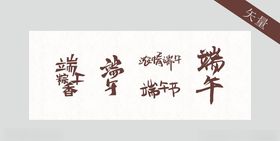 矢量
端午
粽香
端午
浓情端午
端午节
端午